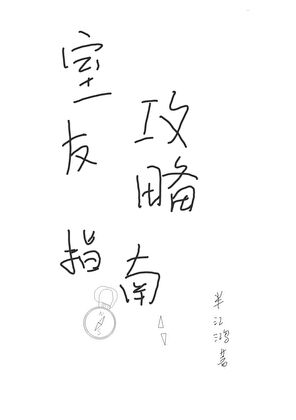 室友
攻略
指南
半江鸿著